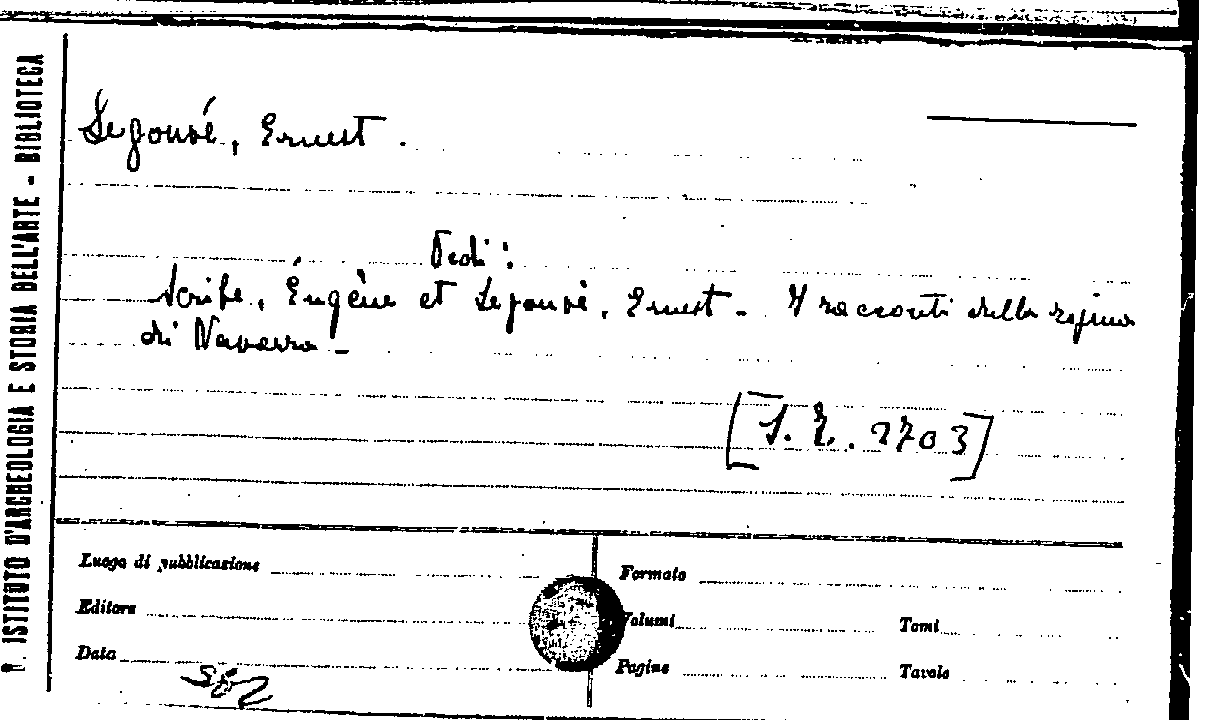 R. ISTITUTO D'ARCHEOLOGIA E STORIA DELL'ARTE - BIBLIOTECA
Legouvé, Ernest.
Vedi:
Scribe, Eugène et Legouvé, Ernest - I racconti della regina
di Navarra -
[S. L. 2703]
Luogo di pubblicazione
Formato
Editore
Volumi
Tomi
Data
Pagine
Tavole